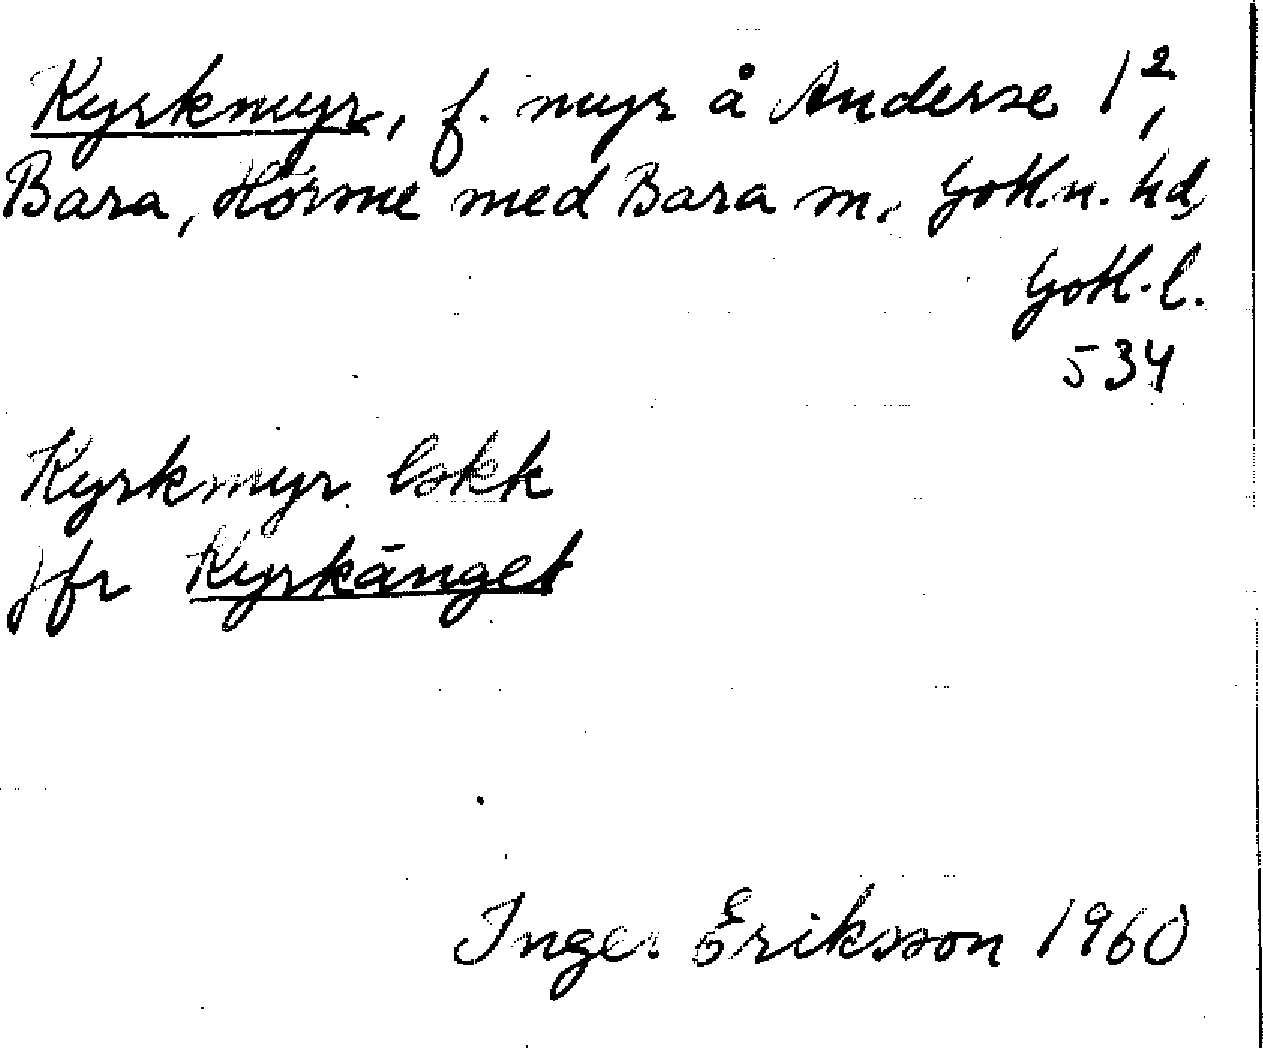 Kyrkmyr, f. myr å Anderse 1²,
Bara, Hörsne med Bara m. Gotl.n. hd,
Gotl. l.
534
Kyrkmyr lskk
jfr Kyrkänget
Inger Eriksson 1960